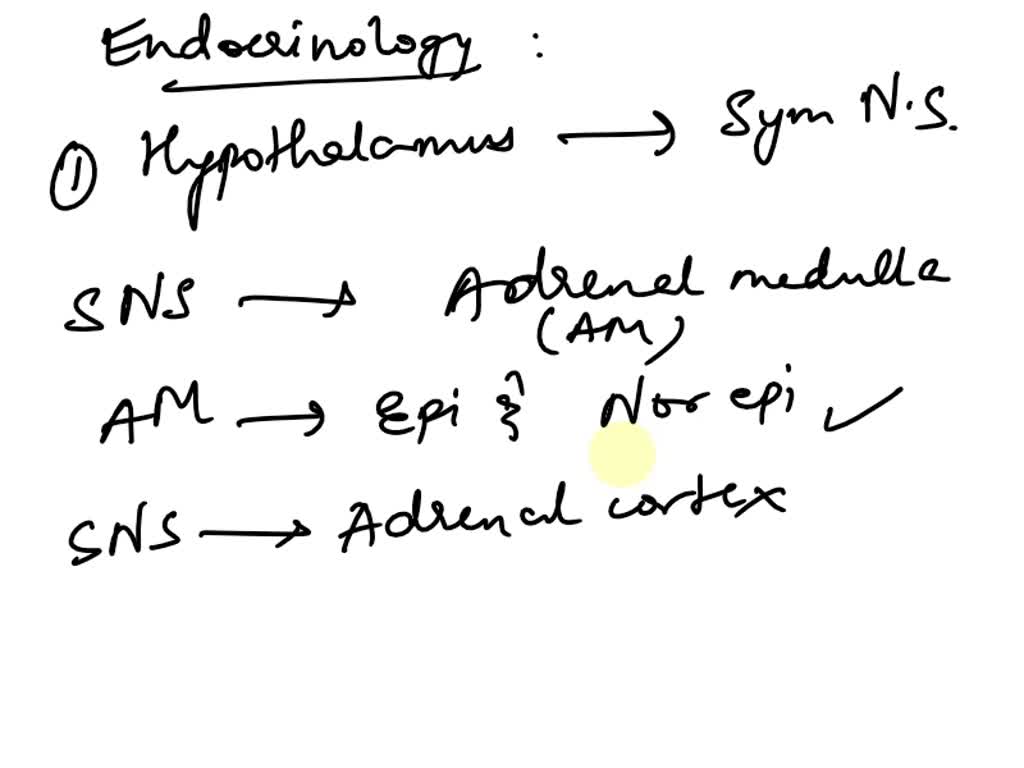 Endocrinology :
① Hypothalamus → Sym N.S.
SNS → Adrenal medulla
(AM)
AM → Epi & Nor epi ✓
SNS → Adrenal cortex